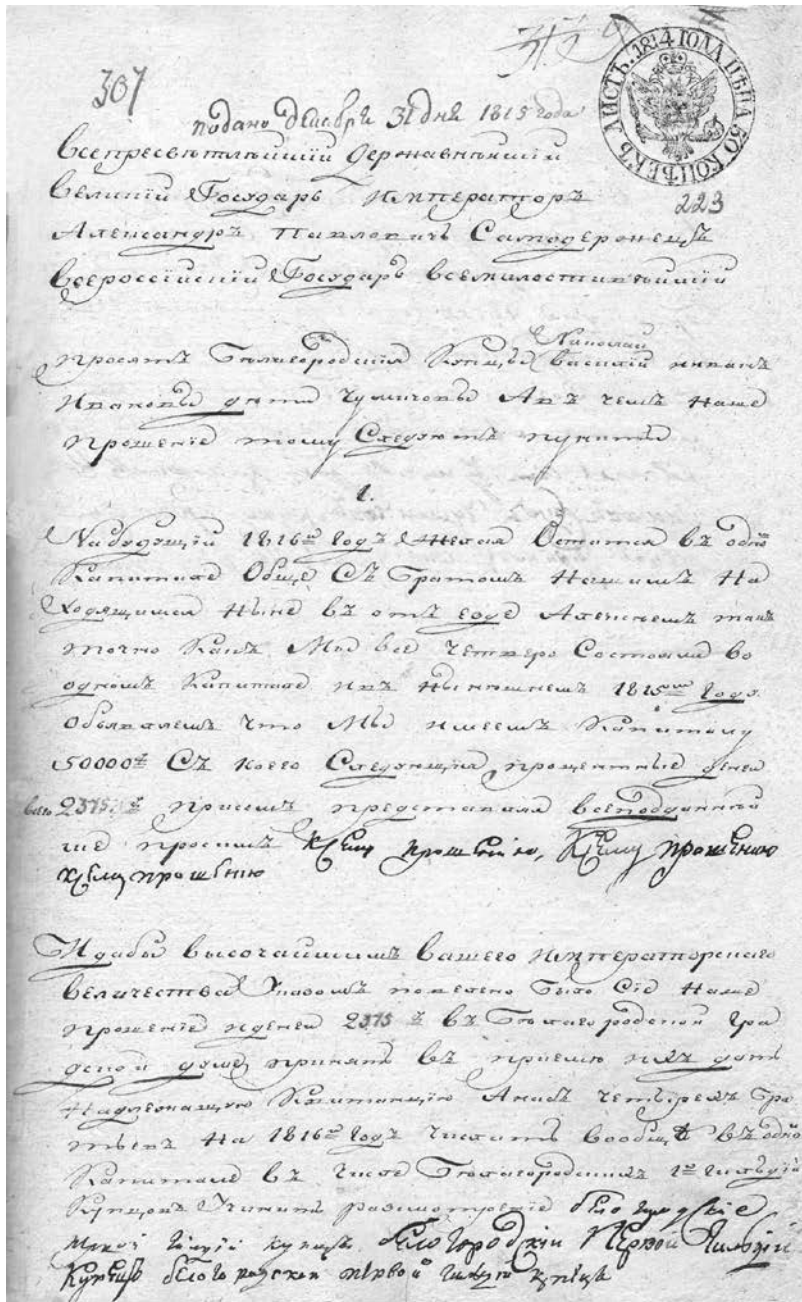 307
ЛИСТЪ. 1814 ГОДА ЦѢНА 50 КОПѢЕКЪ
подано декабря 31 дня 1815 года
223
Всепресветлейший Державнейший
великий Государь Император
Александръ Павловичь Самодержецъ
всероссийский Государь всемилостивейший
Николай
просятъ Белогородския Купцы Василий иванъ
Ивановы дети Чумичовы А въ чемъ наше
прошение тому Следуютъ пункты
1.
На будущий 1816й Годъ Желая Остатся въ одномъ
Капитале Обще Съ Братомъ нашимъ На
ходящимся ныне въ отъ езде Алексеемъ такъ
точно какъ Мы все четверо Состояли во
одномъ Капитале и въ нынешнемъ 1815м Году
Объявляемъ что Мы имеемъ Капиталу
50000 Съ коего Следующия процентные денги
всего 2375 присемъ представляя всеподданней
ше просимъ К сему прошению, К сему прошению
К сему прошению
И дабы высочайшимъ вашего императорскаго
величества Указомъ повелено было Сие наше
прошение и денги 2375 въ Белогородской Гра
дской думе принять въ приеме ихъ дать
Надлежащую Квитанцию А насъ четырехъ Бра
тьевъ На 1816й Годъ числить вообще въ одномъ
Капитале въ числе Белогородскихъ 1й гильдии
Купцовъ Учинить разсмотрение бело городские
гилдии купецъ белогородский Первой Гильдии
Купецъ бело городской первой гилдии купецъ